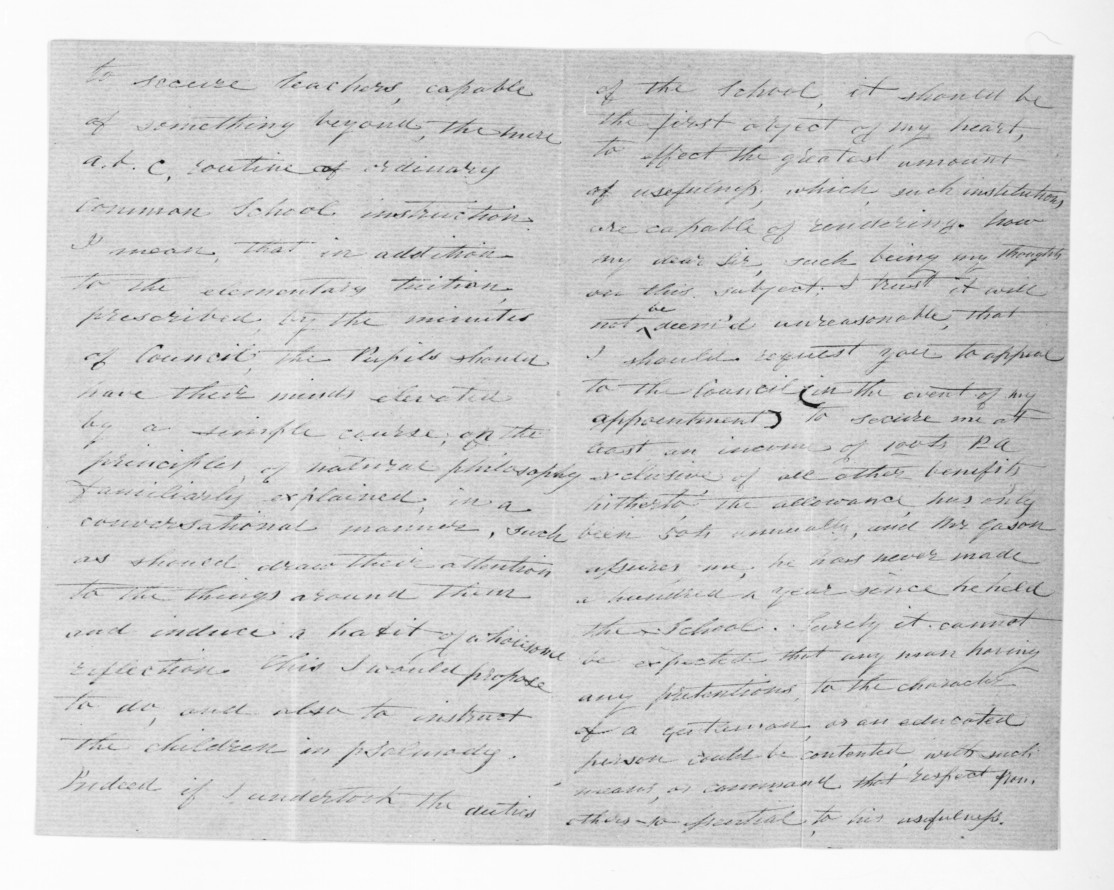 to secure teachers, capable
of something beyond, the mere
a.b.c, routine of ordinary
common School instruction.
I mean, that in addition
to the elementary tuition,
prescribed, by the minutes
of Council, the Pupils should
have their minds elevated
by a simple course, on the
principles, of natural philosophy
familiarly explained, in a
conversational manner, such
as should draw their attention
to the things around them
and induce a habit of wholesome
reflection. This I would propose
to do, and also to instruct
the children in psalmody.
Indeed if I undertook the duties
of the School, it should be
the first object of my heart,
to effect the greatest amount
of usefulness, which, such institutions,
are capable of rendering. Now
my dear Sir, such being my thoughts
on this subject, I trust it will
not be deem'd unreasonable, that
I should request you to appeal
to the Council (in the event of my
appointment) to secure me at
least an income of 100£ P.A
exclusive of all other benefits
hitherto the allowance has only
been 50£ annually, and Mr Gason
assures me, he has never made
a hundred a year since he held
the School. Surely it cannot
be expected that any man having
any pretentions, to the character
of a gentleman, or an educated
person could be contented, with such
means, or command that respect from
others so essential, to his usefulness.